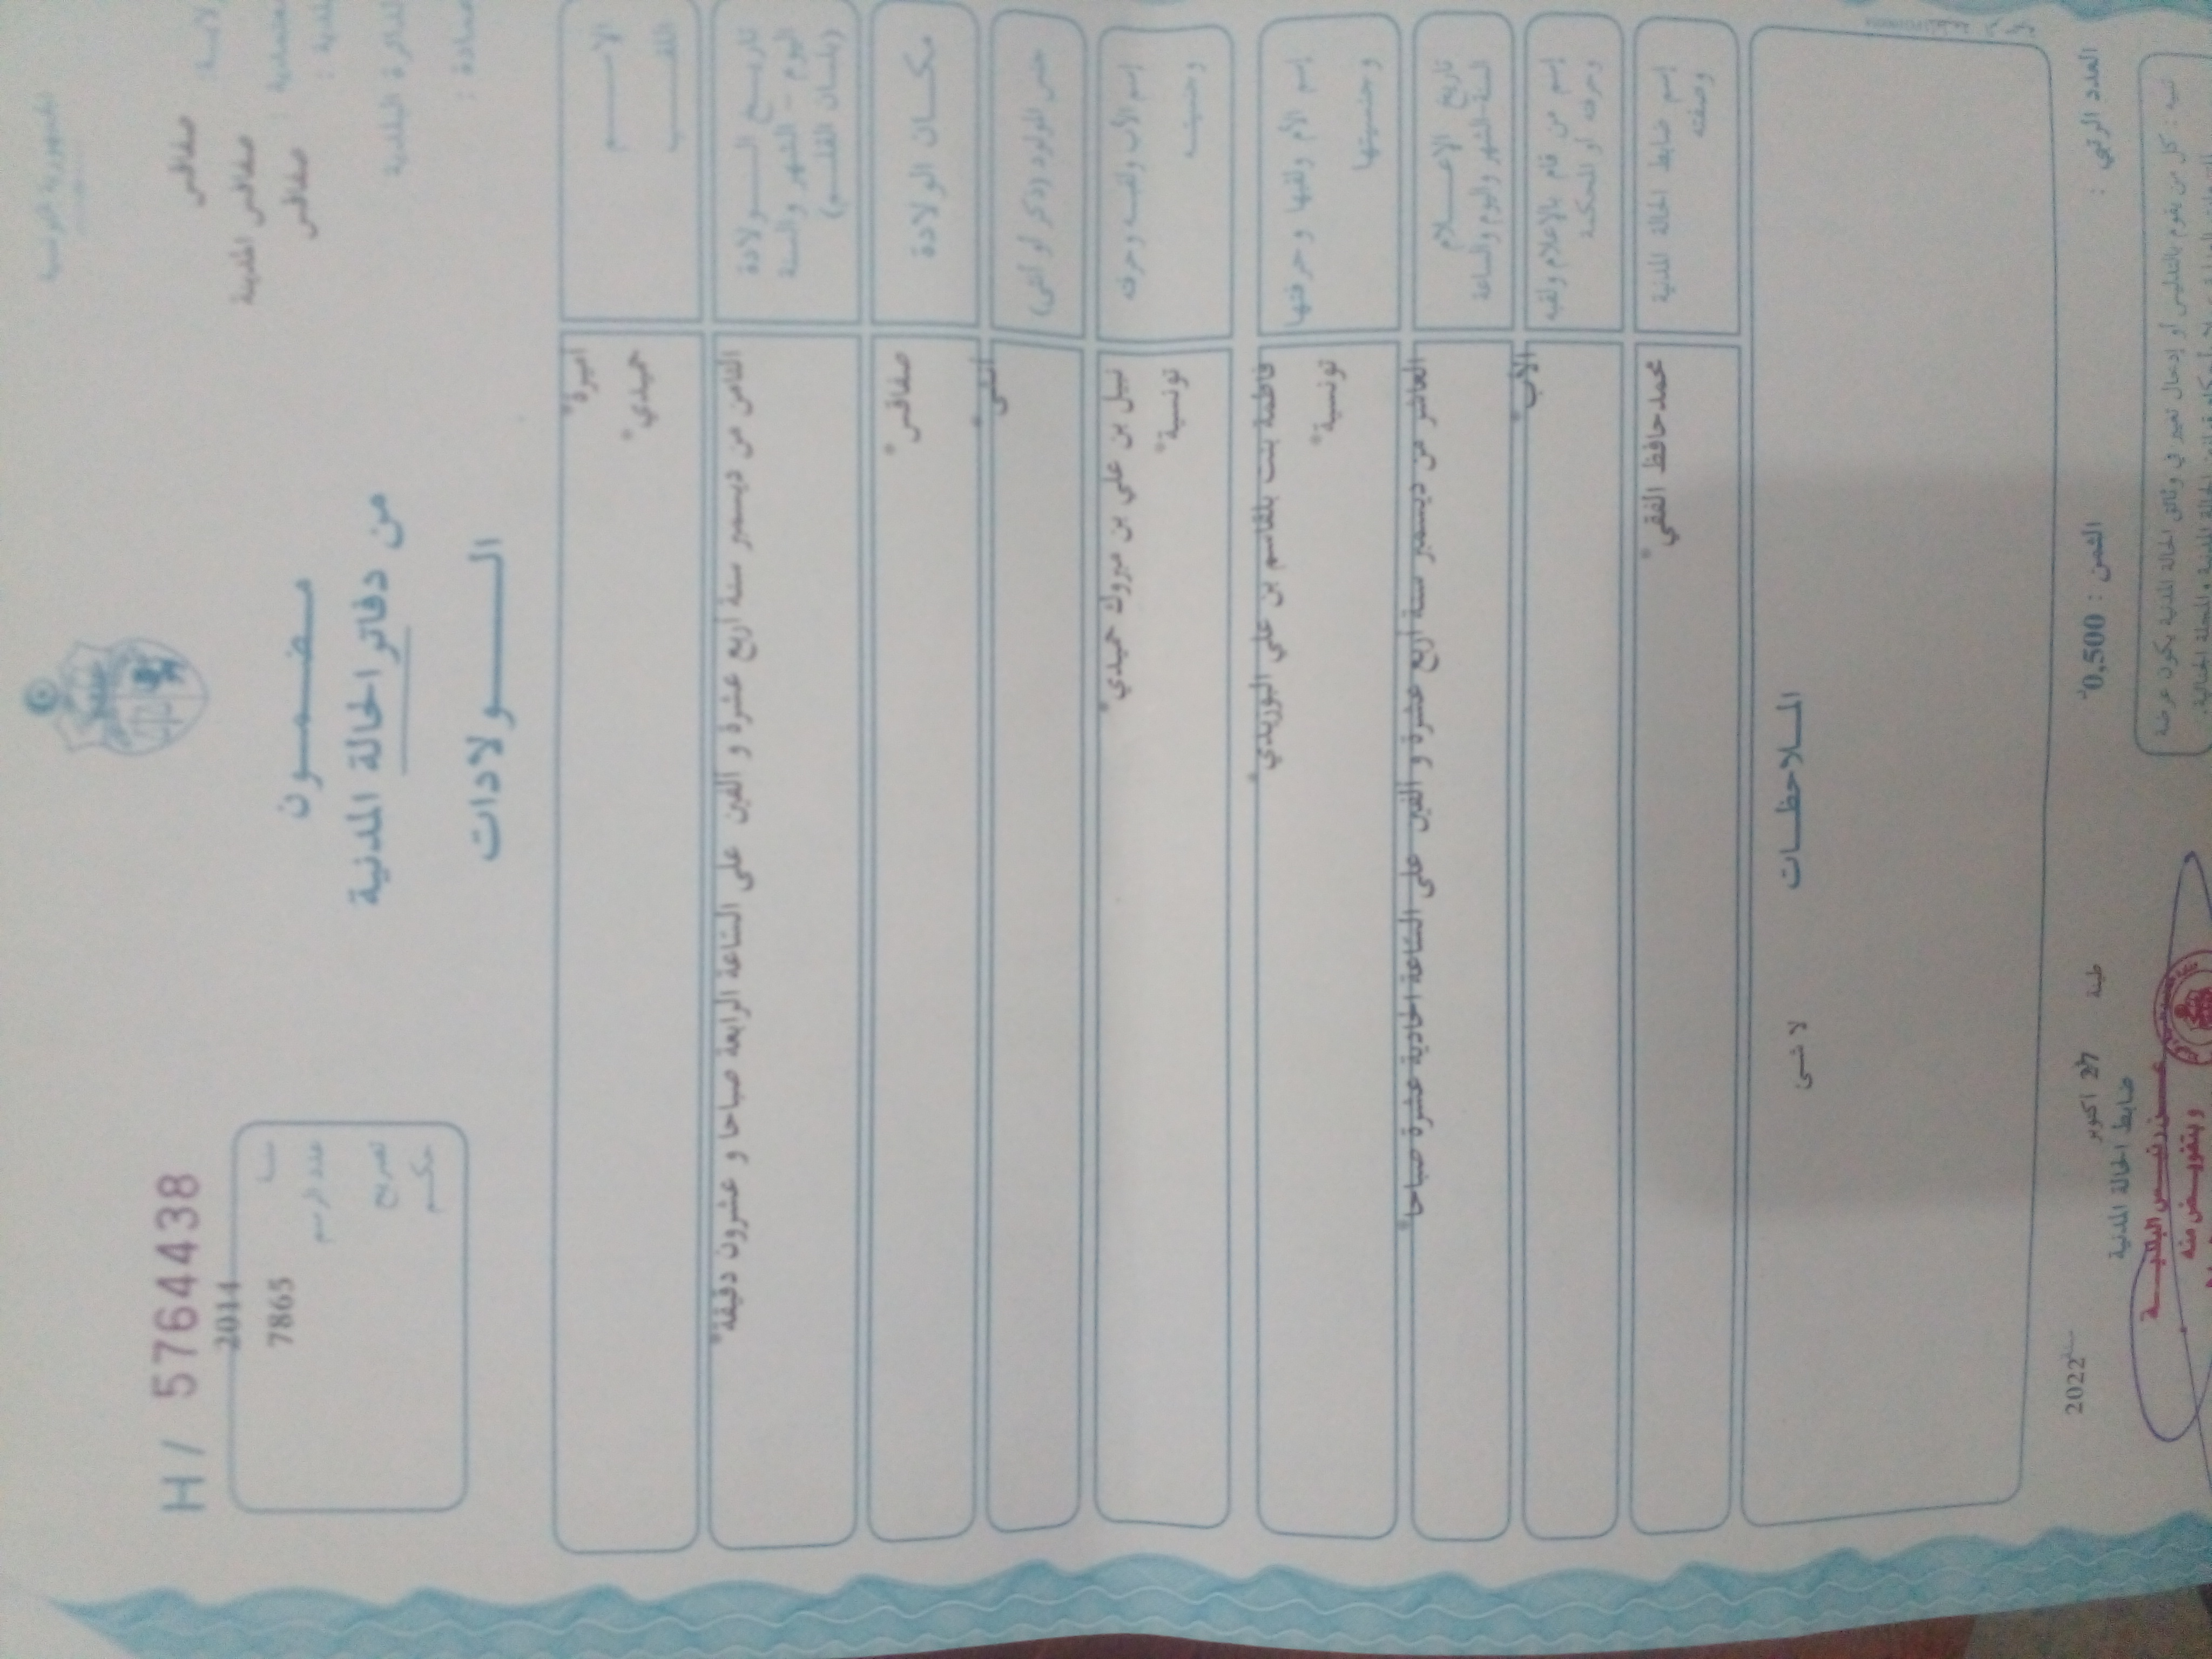 الجمهورية التونسية
H / 5764438
ولاية: صفاقس
معتمدية: صفاقس المدينة
بلدية: صفاقس
الدائرة البلدية
عمادة:
مضمون
من دفاتر الحالة المدنية
الولادات
2014
سنة
7865
عدد الرسم
تصريح
حكم
الاسم
اميرة
اللقب
حميدي
تاريخ الولادة
اليوم - الشهر والسنة
(بلسان القلم)
الثامن من ديسمبر سنة اربع عشرة و الفين على الساعة الرابعة صباحا و عشرون دقيقة
مكان الولادة
صفاقس
جنس المولود (ذكر أو أنثى)
انثى
إسم الأب ولقبه وحرفته
نبيل بن علي بن مبروك حميدي
وجنسيته
تونسية
إسم الأم ولقبها وحرفتها
فاطمة بنت بلقاسم بن علي البوزيدي
وجنسيتها
تونسية
تاريخ الإعلام
السنة الشهر واليوم والساعة
العاشر من ديسمبر سنة اربع عشرة و الفين على الساعة الحادية عشرة صباحا
إسم من قام بالإعلام ولقبه
وحرفته أو المحكمة
الأب
إسم ضابط الحالة المدنية
وصفته
محمد حافظ الفقي
الملاحظات
لا شئ
العدد الرتبي :
الثمن : 0,500
27 اكتوبر
2022
ضابط الحالة المدنية
عن رئيس البلدية
وبتفويض منه
تنبيه : كل من يقوم بالتدليس أو إدخال تغيير في وثائق الحالة المدنية يكون عرضة